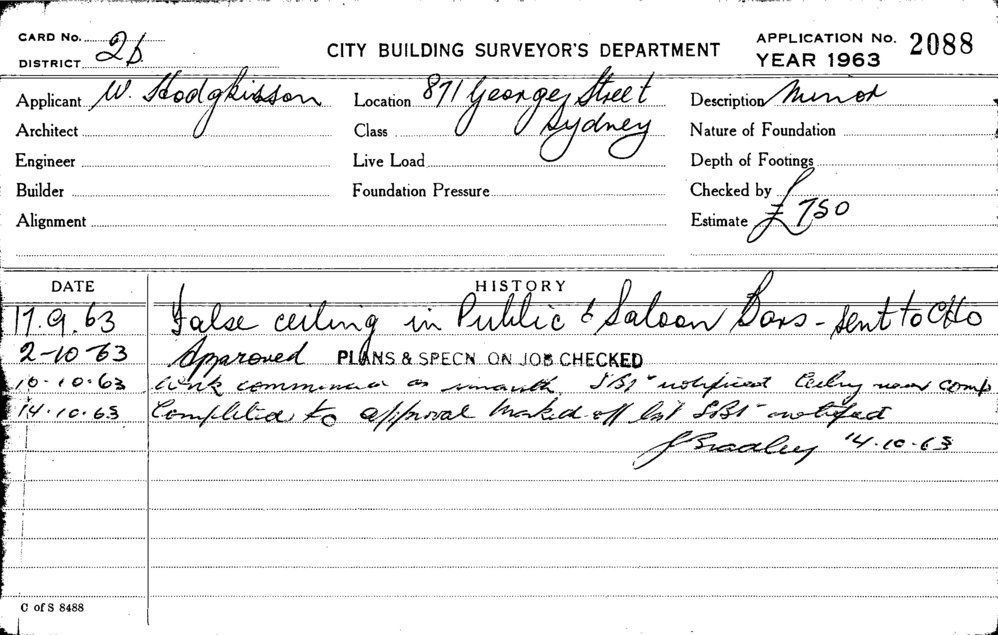 CARD No. 2b
DISTRICT
CITY BUILDING SURVEYOR'S DEPARTMENT
APPLICATION No. 2088
YEAR 1963
Applicant W. Hodgkisson
Location 871 George Street
Sydney
Description Minor
Architect
Class
Nature of Foundation
Engineer
Live Load
Depth of Footings
Builder
Foundation Pressure
Checked by
Alignment
Estimate £750
DATE
HISTORY
17.9.63 False ceiling in Public & Saloon Bars - sent to CHO
2-10-63 Approved PLANS & SPECN. ON JOB CHECKED
10-10-63 Work commenced notified Ceiling near comp
14.10.63 Completed to approval marked off list SBI notified
J Bradley 14.10.63
C of S 8488